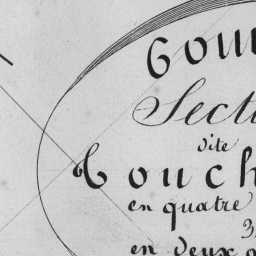 Com
Secti
dite
Couch
en quatre
3
en deux